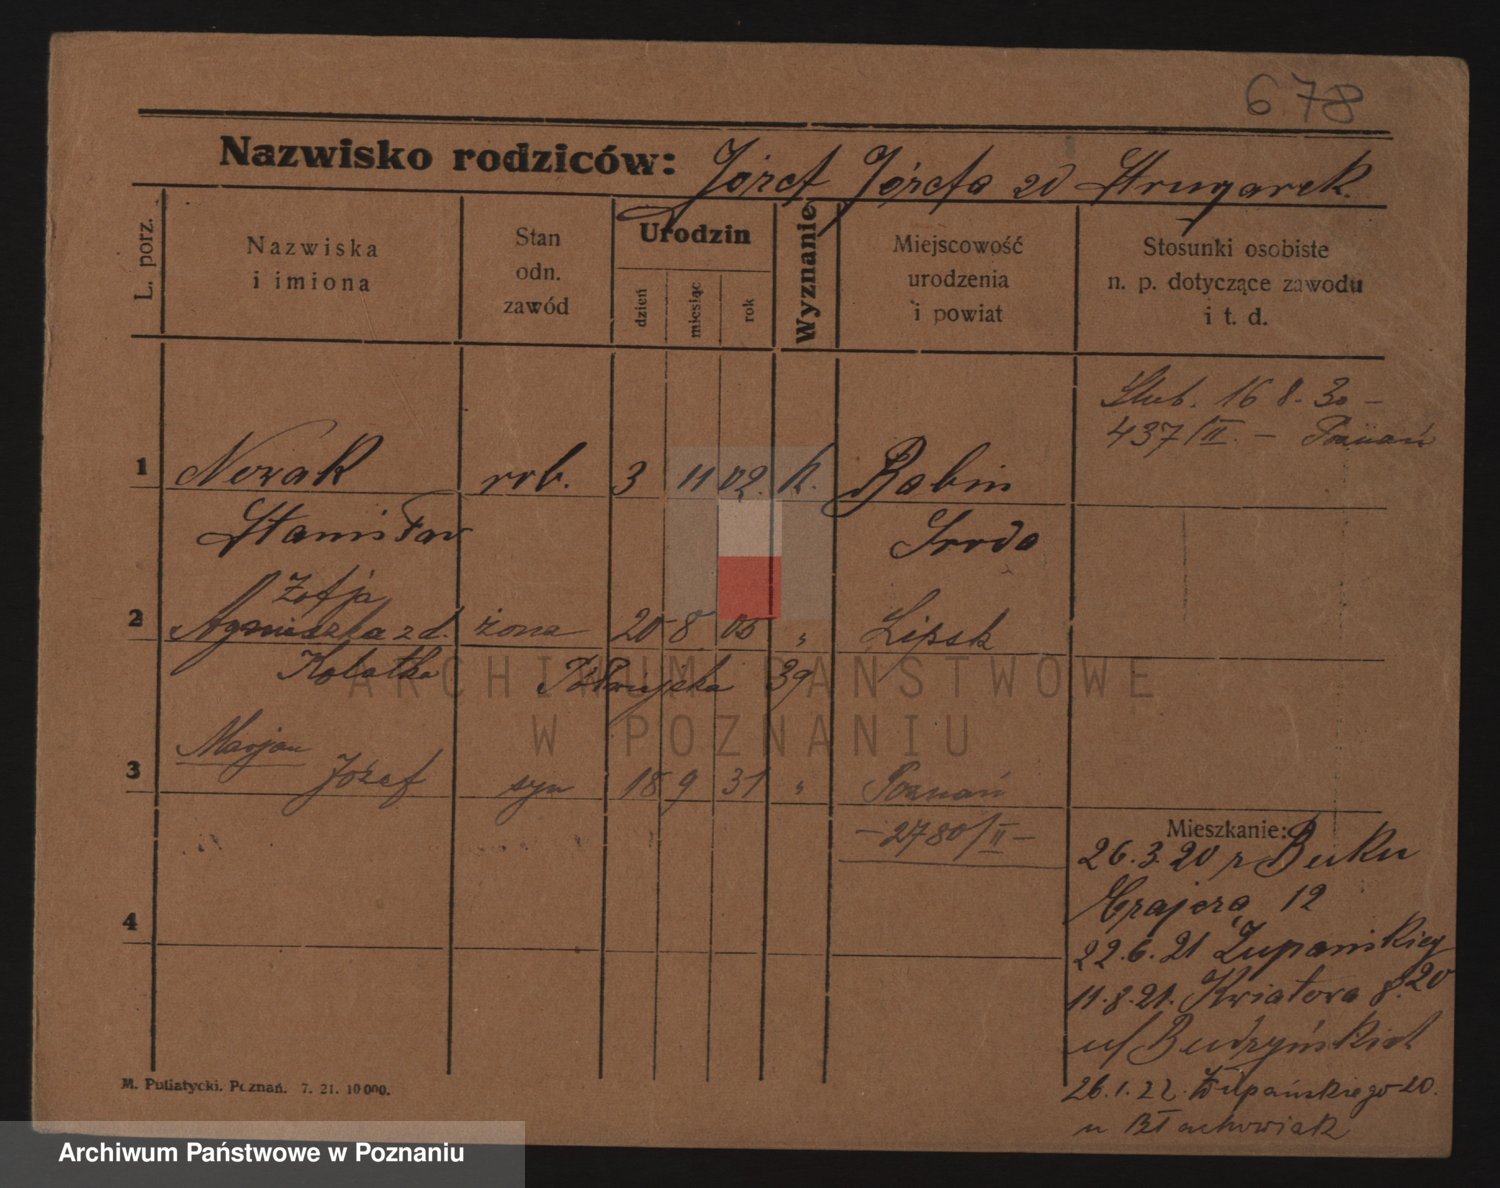 678
Nazwisko rodziców: Józef Józefa zd Strugarek.
L. porz.
Nazwiska i imiona
Stan odn. zawód
Urodzin
dzień
miesiąc
rok
Wyznanie
Miejscowość urodzenia i powiat
Stosunki osobiste n. p. dotyczące zawodu i t. d.
Ślub. 16 8. 30 –
437/II. – Poznań
1 Nowak rob. 3 11 02. k. Babin
Stanisław Środa
Zofja
2 Agnieszka z d. żona 20 8 05 „ Lipsk
Kolatka 39
Marjan
3 Józef syn 18 9 31 „ Poznań
– 2780/II –
Mieszkanie:
26.3.20 z Buku
Grajera 12
4
22.6.21 Żupańskieg 20
11.8.21. Kwiatowa 8.
u/ Budzyński
26.1.22. Żupańskiego 20.
u Błachowiak
M. Putiatycki, Poznań. 7. 21. 10 000.
ARCHIWUM PAŃSTWOWE
W POZNANIU
Archiwum Państwowe w Poznaniu